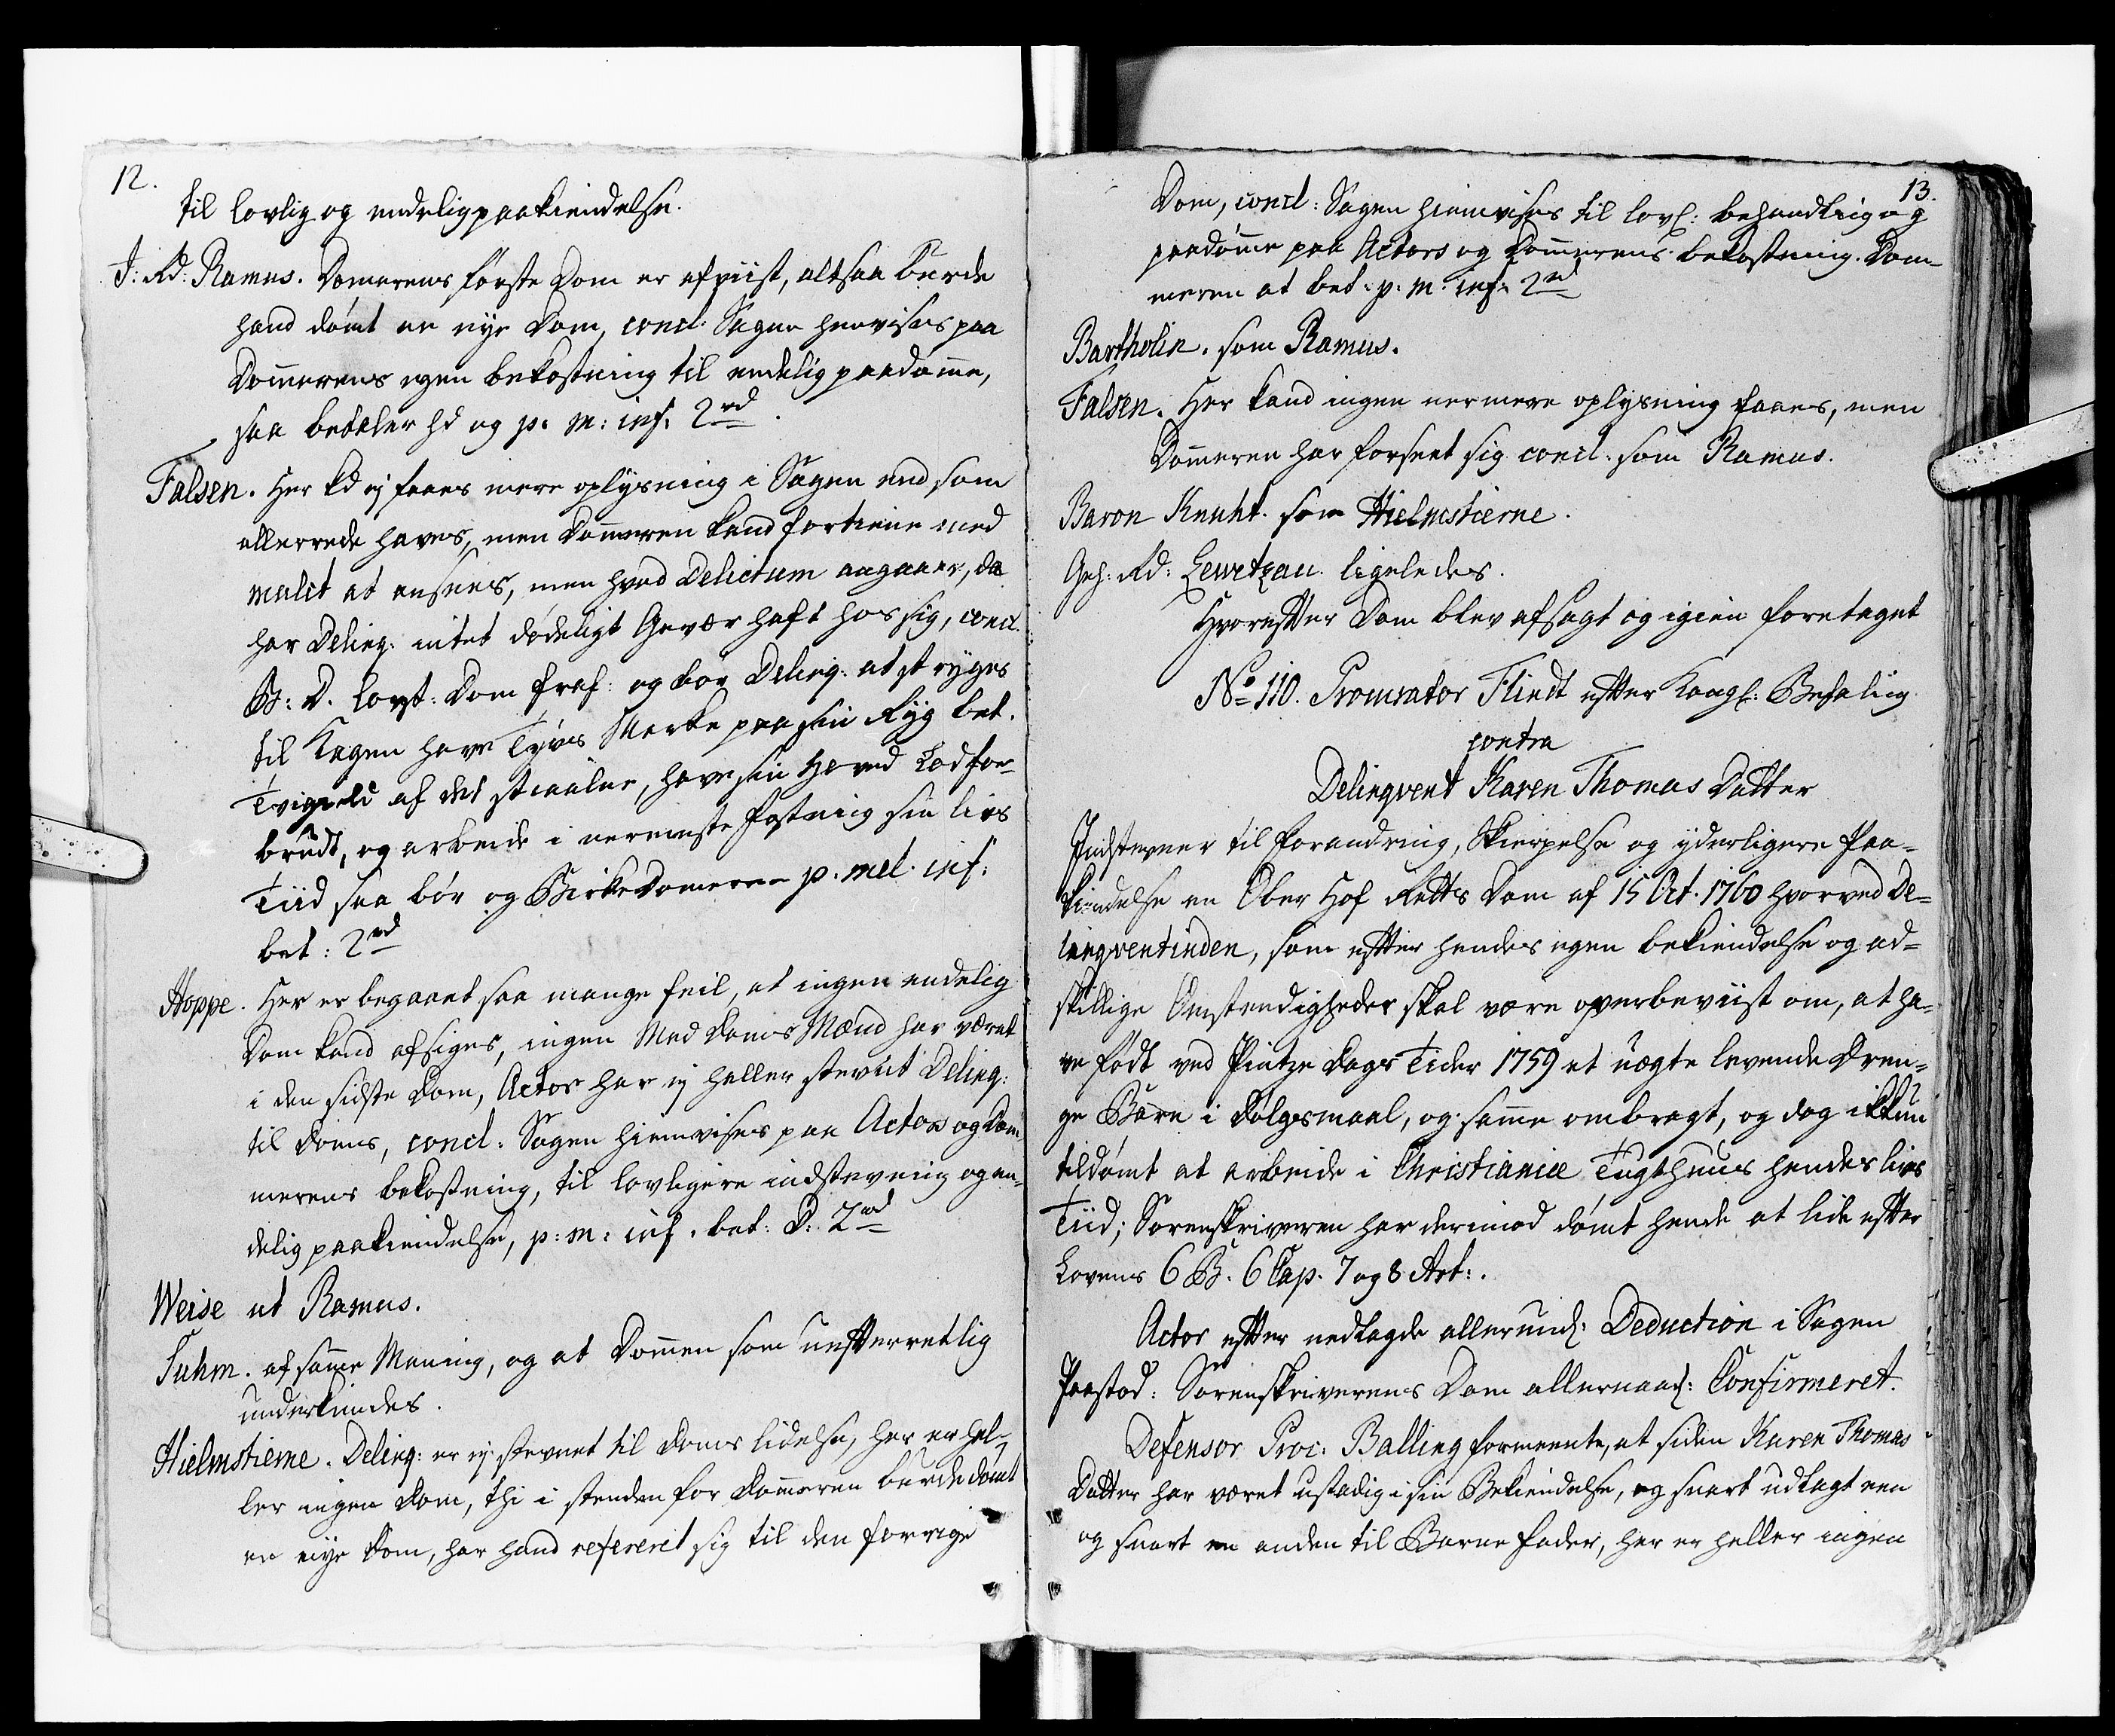 12.
til lovlig og endelig paakiendelse.
J: Rd: Ramus. Domerens første Dom er afviist, altsaa burde
hand dømt en nye Dom, concl: Sagen henvises paa
Dommerens egen bekostning til endelig paadømme,
saa betaler hd og p. m: inf. 2 rd.
Falsen. Her kd ej faaes mere oplysning i Sagen end som
allerrede haves, men Dommeren kand fortiene med
mulct at ansees, men hvad Delictum angaaer, da
har Delinq: intet dødeligt Gevær haft hos sig, concl.
B: D. lovf: Dom fraf: og bør Delinq: at stryges
til Kagen have Tyvs Merke paa sin Ryg bet.
Tvigield af det stiaalne, have sin Hoved Lod for-
brudt, og arbeide i nermeste Fæstning sin livs
Tiid saa bør og Birkedomeren p. mel. inf:
bet: 2 rd
Hoppe. Her er begaaet saa mange feil, at ingen endelig
Dom kand afsiges, ingen Med Doms Mænd har været
i den sidste Dom, Actor har ej heller stevnt Delinq:
til Doms, concl: Sagen hiemvises paa Actors og Dom
merens bekostning, til lovligere indstevning og en-
delig paakiendelse, p: m: inf. bet: D: 2 rd
Weise ut Ramus.
Suhm. af samme Mening, og at Dommen som uefterretlig
underkiendes.
Hielmstierne. Delinq: er ej stevnet til Doms lidelse, her er hel-
ler ingen Dom, thi i steden for Dommeren burde dømt
en nye Dom, har hand refereret sig til den forrige
13.
Dom, concl: Sagen hiemvises til lovl: behandling og
paadømme paa Actors og Dommerens bekostning. Dom-
meren at bet: p: m: inf: 2 rd
Bartholin. som Ramus.
Falsen. Her kand ingen nermere oplysning faaes, men
Dommeren har forseet sig concl: som Ramus.
Baron Knuht. som Hielmstierne.
Geh: Rd: Lewetzau. ligeledes.
Hvorefter Dom blev afsagt og igien foretaget
No 110. Procurator Flindt efter Kongl: Befaling
contra
Delinqvent Karen Thomas Datter
Indstevner til forandring, Skierpelse og yderligere Paa-
kiendelse en Ober Hof Retts Dom af 15 Oct. 1760 hvorved De-
linqventinden, som efter hendes egen bekiendelse og ad-
skillige Omstendigheder skal være overbeviist om, at ha-
ve født ved Pintze Dags Tider 1759 et uægte levende Dren-
ge Barn i Dølgsmaal, og samme ombragt, og dog ikkun
tildømt at arbeide i Christianiæ Tugthuus hendes livs
Tiid; Sorenskriveren har derimod dømt hende at lide efter
Lovens 6 B. 6 Cap. 7 og 8 Art:.
Actor efter nedlagde allerund: Deduction i Sagen
Paastod: Sorenskriverens Dom allernaad: Confirmeret.
Defensor Proc: Balling formeente, at siden Karen Thomas
Datter har været ustadig i sin Bekiendelse, og snart udlagt een
og snart en anden til Barne fader, her er heller ingen